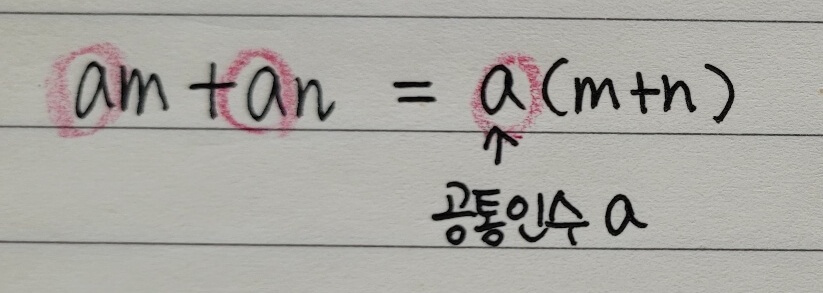 am + an = a(m+n)
↑
공통인수 a